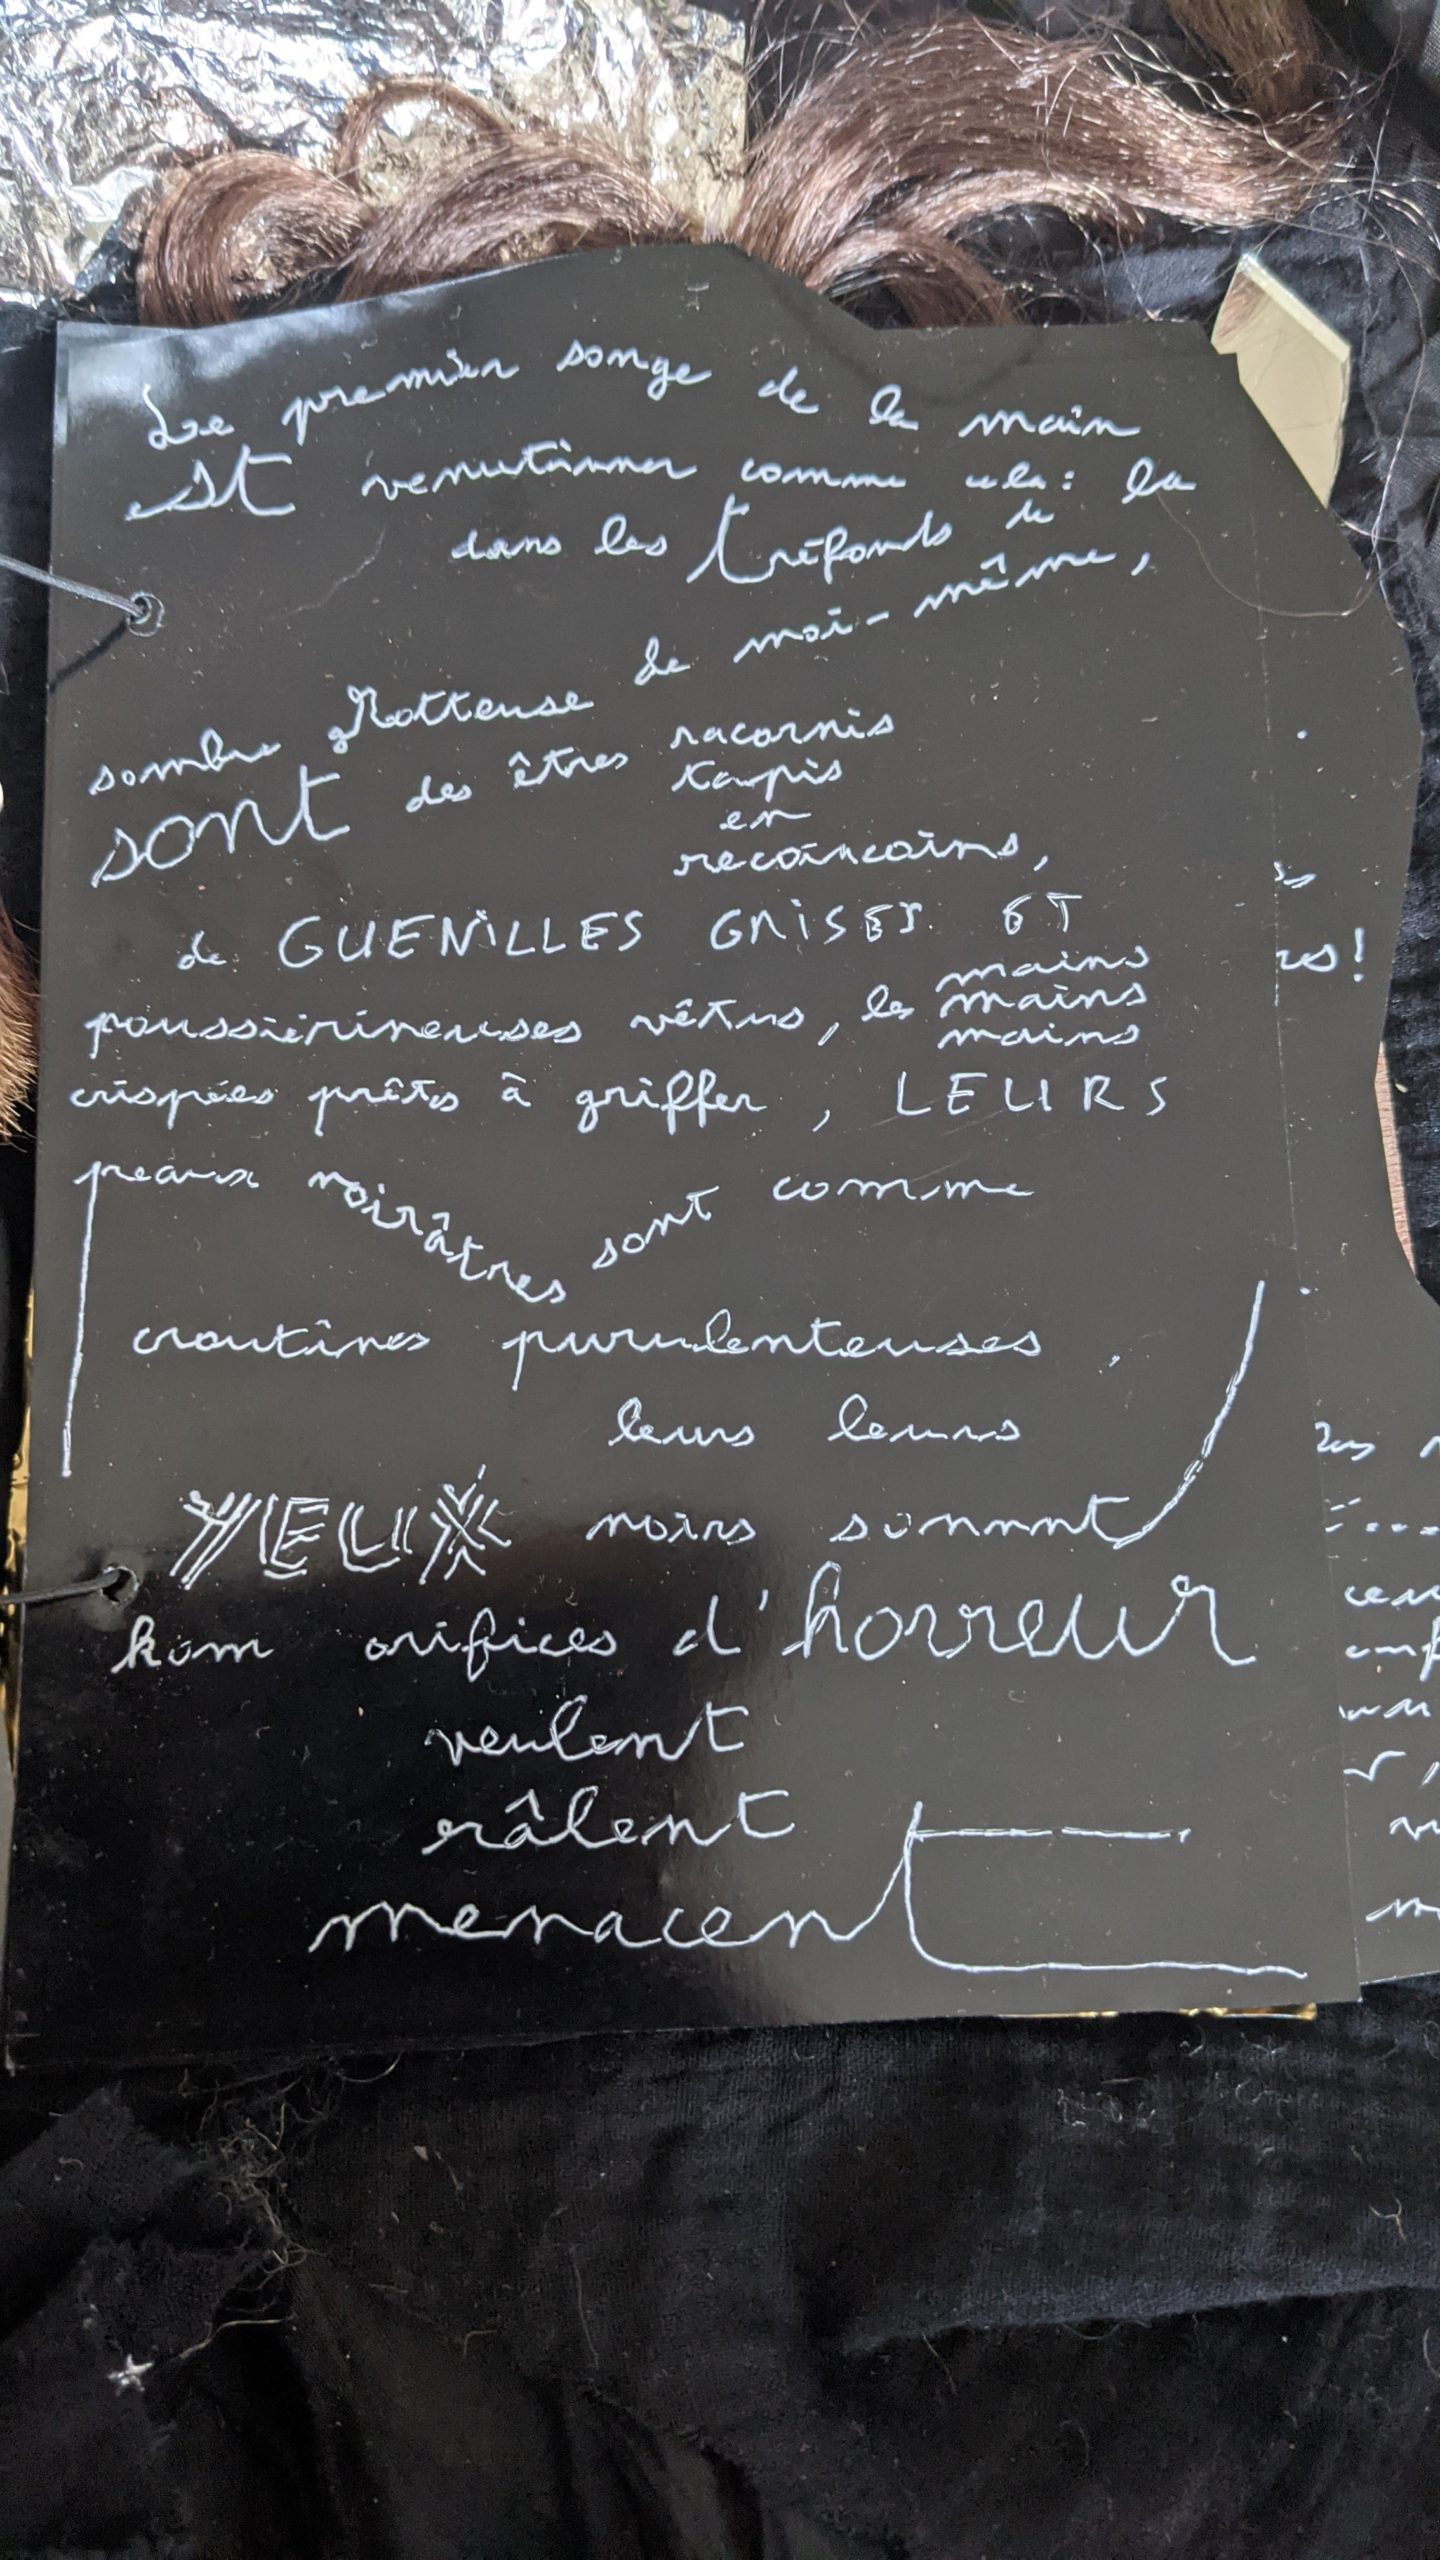 Le premier songe de la main
est venutinner comme cela : là
dans les tréfonds de
sombre grotteuse de moi-même,
sont des êtres racornis
tapis
en
recoincoins,
de GUENiLLES GRiSES ET
poussiérineuses vêtus, les mains
mains
mains
crispées prêts à griffer, LEURS
peaux noirâtres sont comme
croutînes purulenteuses,
leurs leurs
YEUX noirs sonnnt
kom orifices d'horreur
veulent
râlent
menacent
rs!